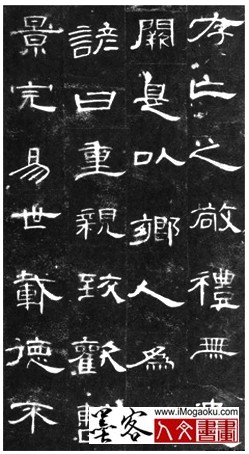 存亡之敬禮無
闕是以鄉人為
諺曰重親致歡
景完易世載德不
www.iMogaoku.com
墨客
人文書畫